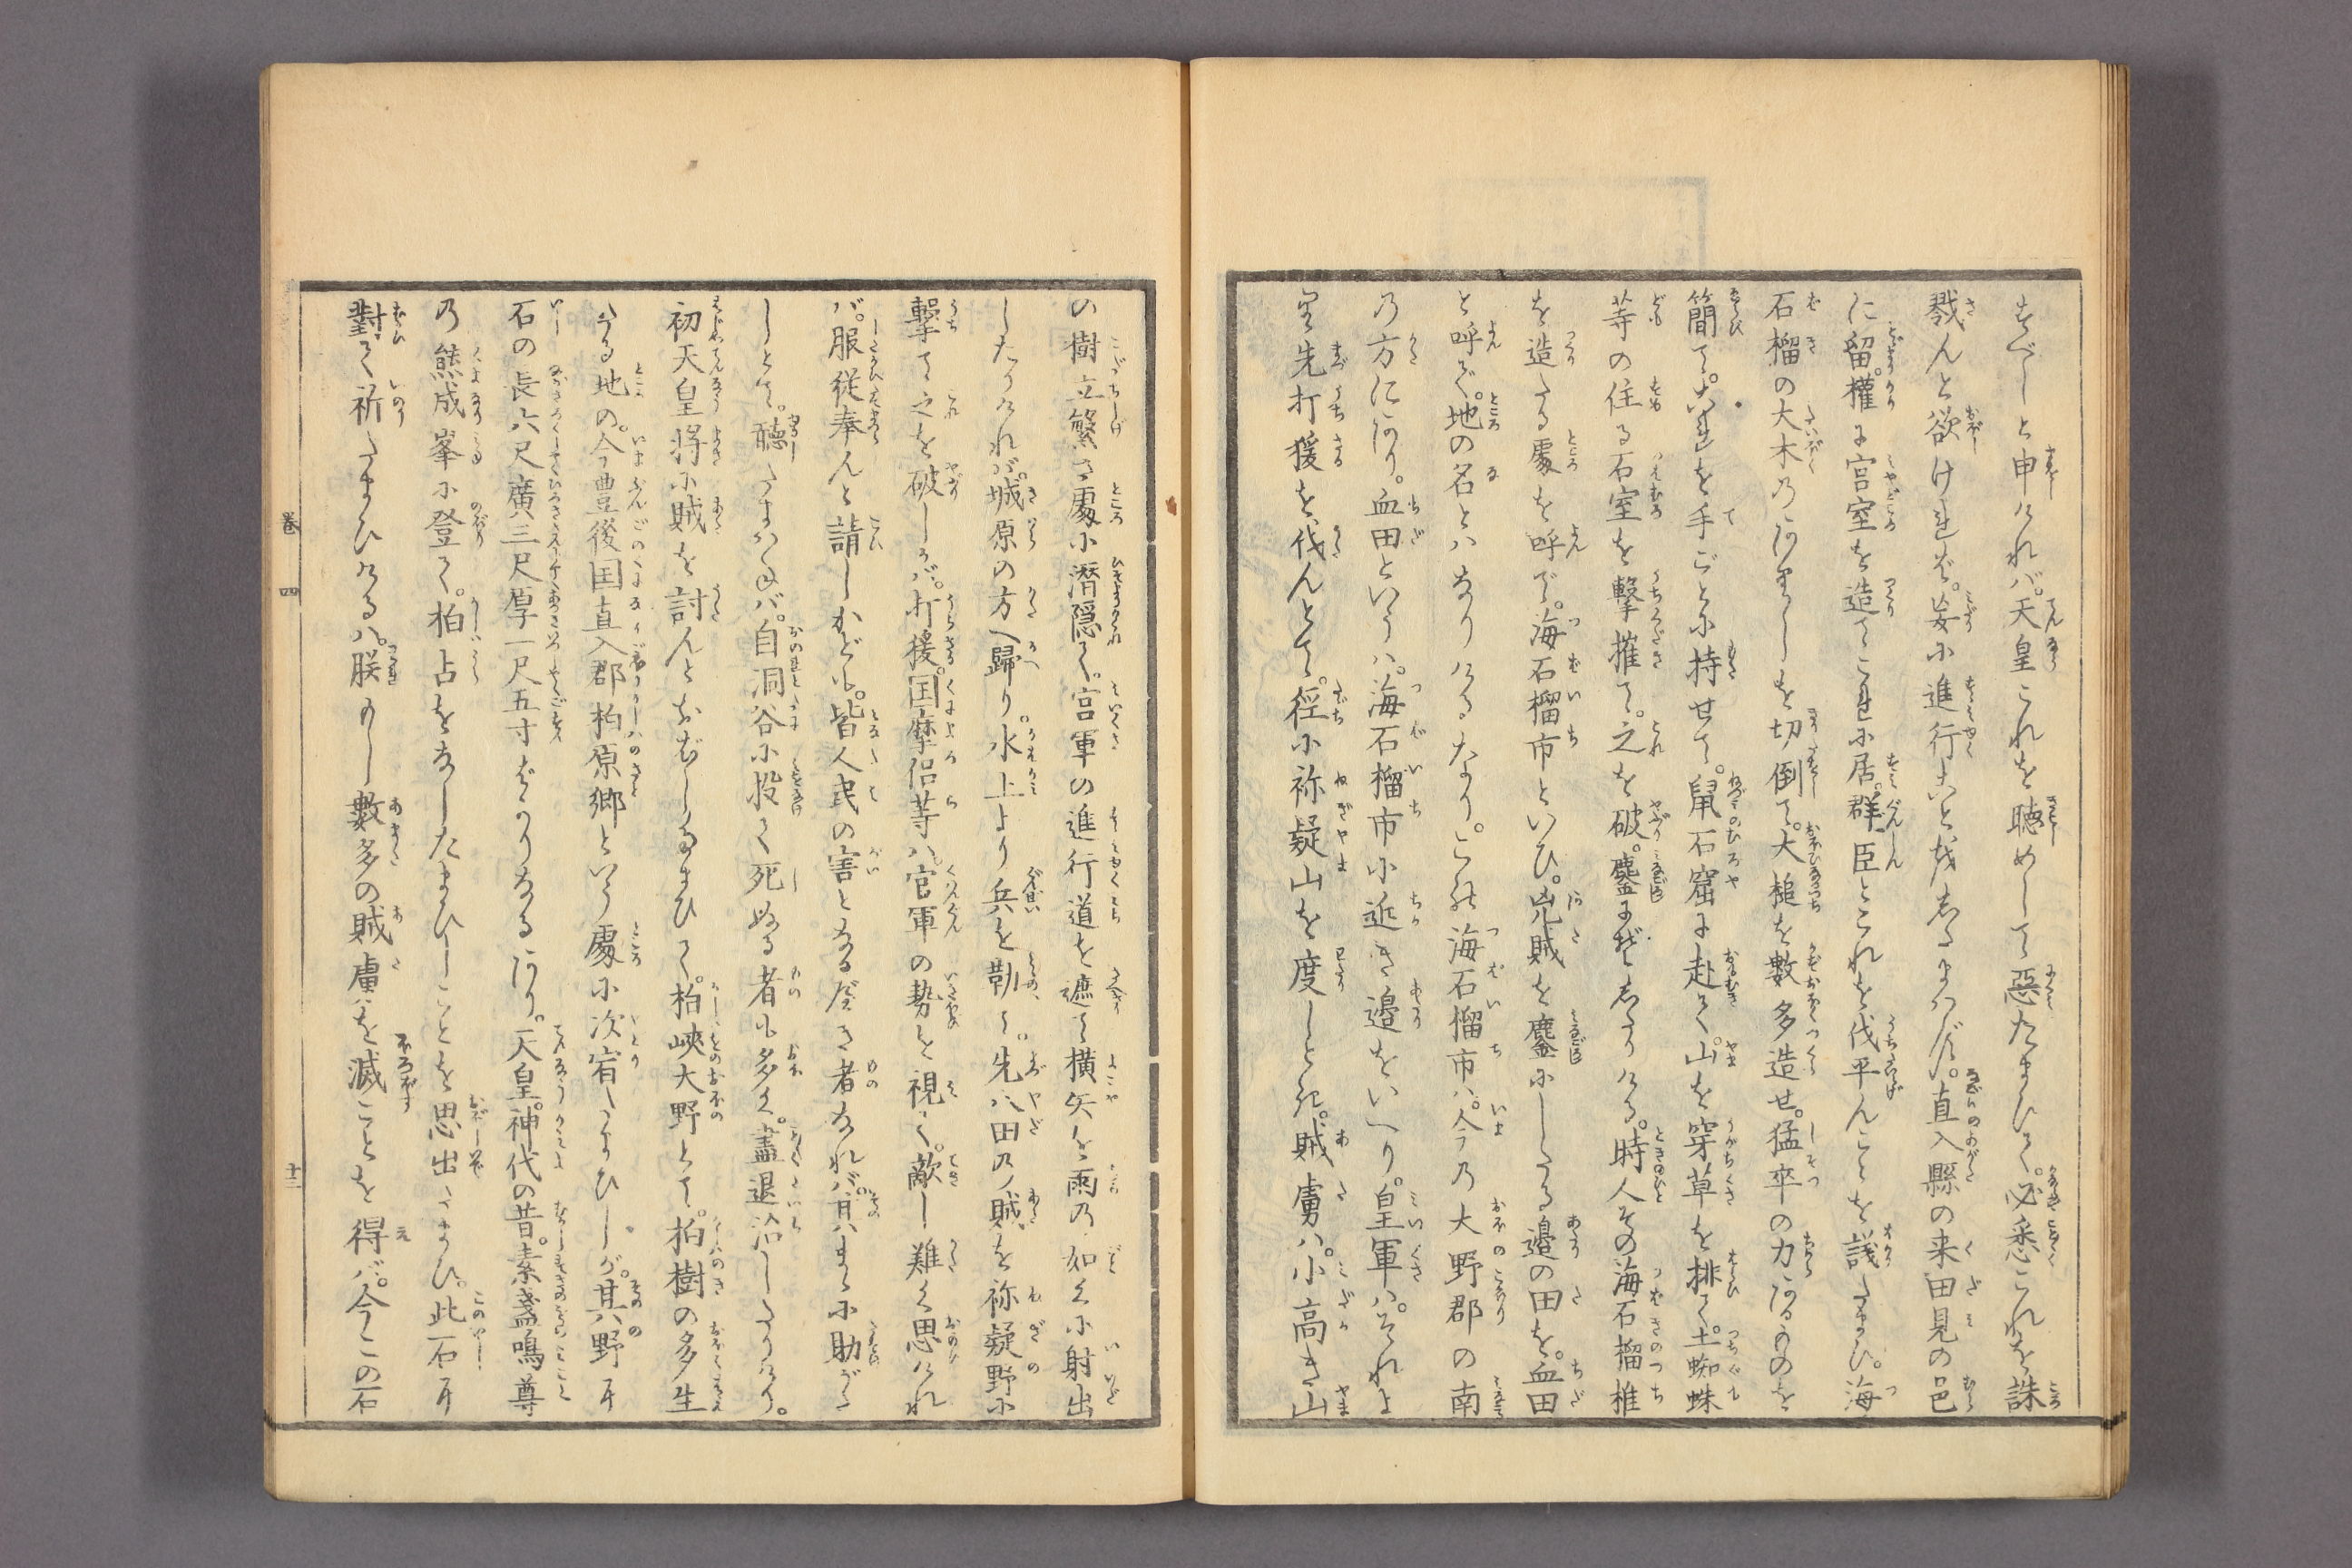 まじと申ければ。天皇これを聴めして惡たまひて。必悉これを誅
戮んと欲けれど。妄に進行ことをしたまはず。直入縣の来田見の邑
に留。權に宮室を造てこれに居。群臣とこれを伐平んことを議たまひ。海
石榴の大木のありしを切倒て。大槌を數多造せ。猛卒の力あるものを
簡て。これを手ごとに持せて。鼠石窟に赴て。山を穿草を排て。土蜘蛛
等の住る石室を撃摧て。之を破。鏖にぞしたりける。時人その海石榴椎
を造たる處を呼で。海石榴市といひ。兇賊を鏖にしたる邉の田を。血田
と呼で。地の名とはなりけるなり。この海石榴市ハ。今の大野郡の南
の方にあり。血田といふハ。海石榴市に近き邉をいへり。皇軍ハ。それよ
り先打猨を伐んとて。徑に祢疑山を度しとき。賊虜ハ。小高き山
の樹立繁き處に潜隠て。官軍の進行道を遮て横矢を雨の如くに射出
したりければ。城原の方へ歸り。水上より兵を勒て。先八田の賊を祢疑野に
撃て之を破しかバ。打猨。国摩侶等ハ官軍の勢を視て。敵し難く思けれ
バ。服従奉んと請しかども。皆人民の害となるべき者なれバ。其まゝに助がた
しとて。聴たまはねバ。自洞谷に投て死ぬる者も多く。盡退治したりけり。
初天皇将に賊を討んとおぼしたまひて。柏峡大野とて。柏樹の多生
たる地の。今豊後国直入郡柏原郷といふ處に次宿したまひしが。其野に
石の長六尺廣三尺厚一尺五寸ばかりなるあり。天皇。神代の昔。素盞鳴尊
の熊成峯に登て。柏占をなしたまひしことを思出たまひ。此石に
對て祈たまひけるハ。朕もし數多の賊虜を滅ことを得バ。今この石
巻四
十二